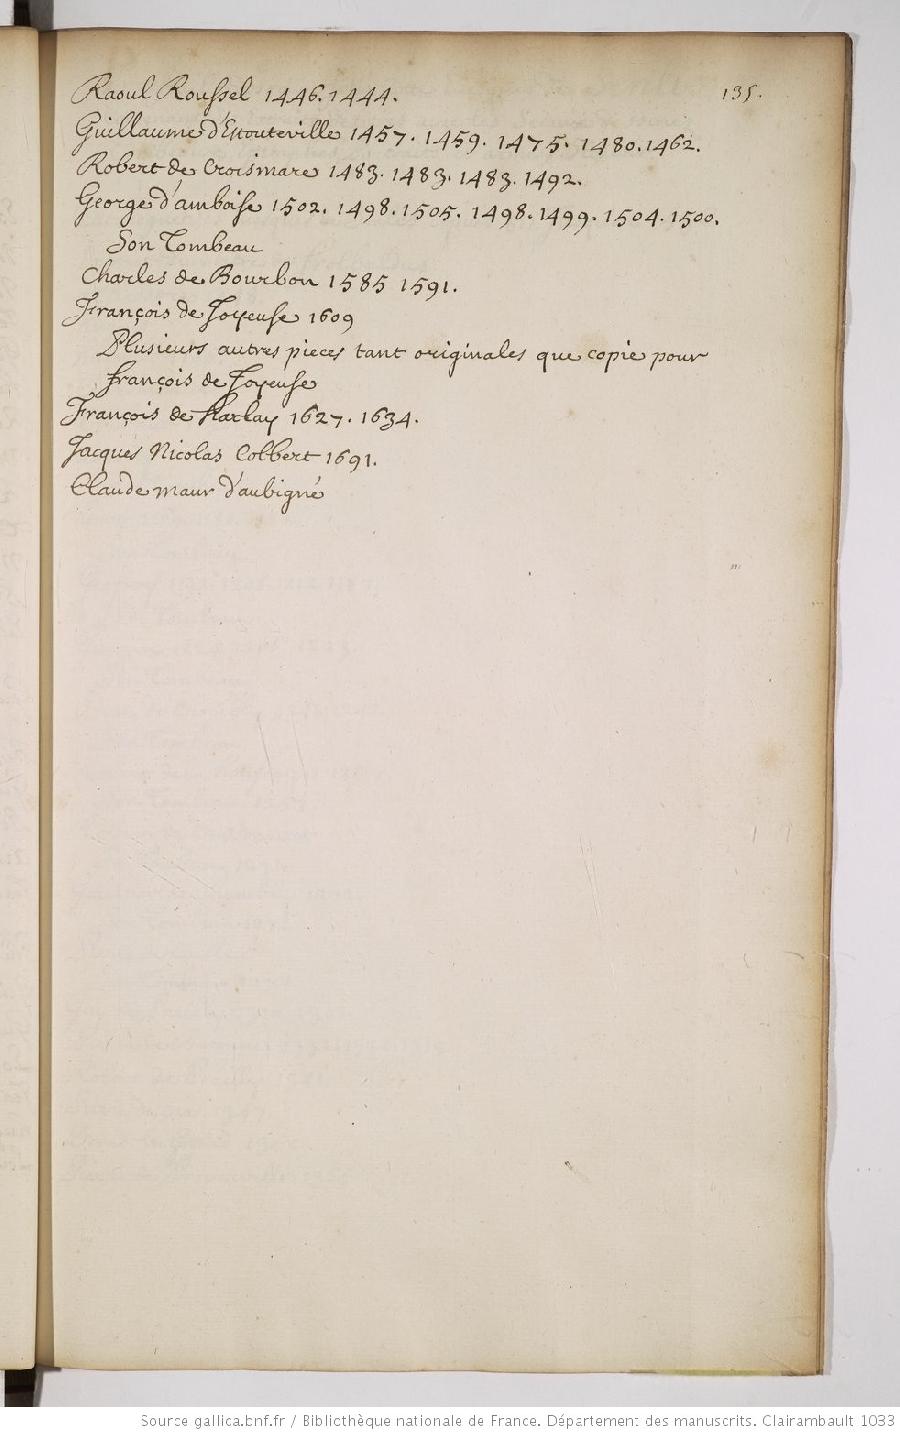 135.
Raoul Roussel 1446. 1444.
Guillaume d'Estouteville 1457. 1459. 1475. 1480. 1462.
Robert de Croismare 1483. 1483. 1483. 1492.
George d'amboise 1502. 1498. 1505. 1498. 1499. 1504. 1500.
Son Tombeau
Charles de Bourbon 1585 1591.
François de Joyeuse 1609
Plusieurs autres pieces tant originales que copie pour
françois de Joyeuse
François de Harlay 1627. 1634.
Jacques Nicolas Colbert 1691.
Claude maur d'aubigné
Source gallica.bnf.fr / Bibliothèque nationale de France. Département des manuscrits. Clairambault 1033